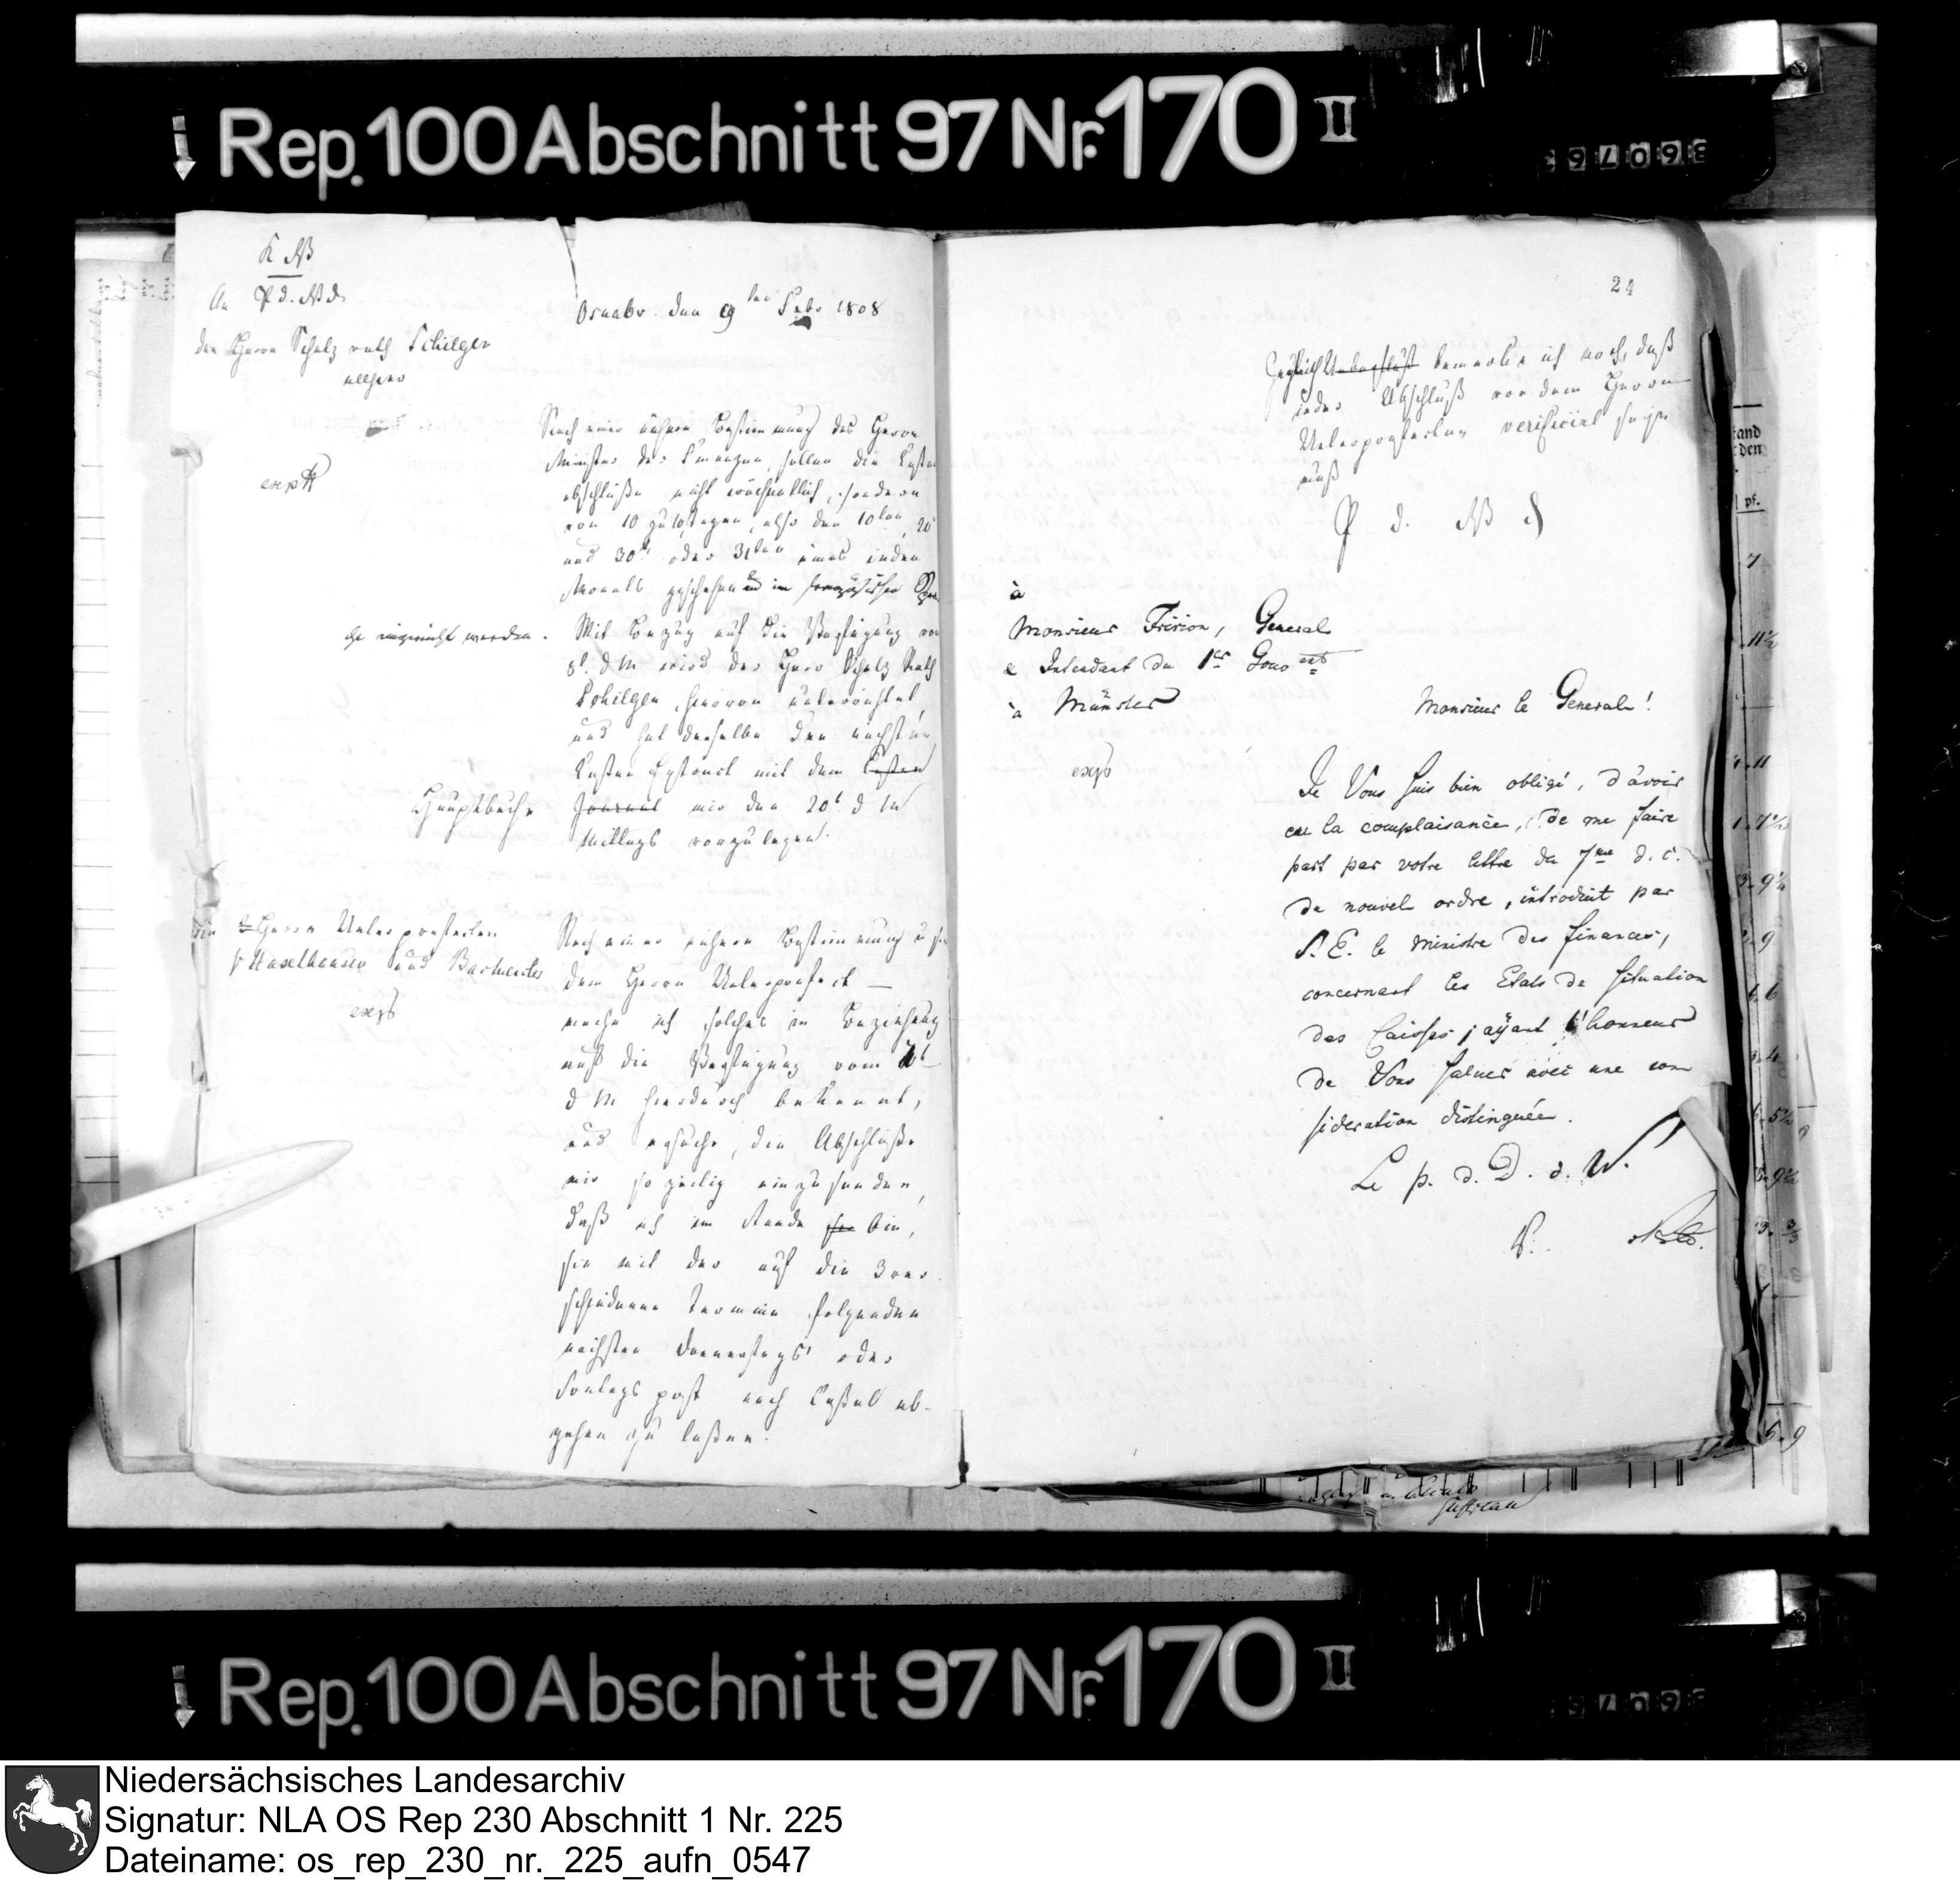 Rep. 100 Abschnitt 97 Nr. 170 II
360769
K
An P d. W d.
den Herrn Schatz rath Schilgen
allhier
Osnabr. den 9ten Febr 1808
expdt
Nach einer nähern Bestimmung des Herrn
Ministers der Finanzen, sollen die Cassen
abschlüße nicht wöchentlich, sondern
von 10 zu 10 Tagen, also den 10ten, 20
und 30t oder 31ten eines jeden
Monats geschehen und im französischer Spra
che eingereicht werden.
Mit Bezug auf die Verfügung vom
8t. d M wird der Herr Schatz Rath
Schilgen hiervon unterrichtet,
und hat derselbe den nächsten
Cassen Extract mit dem Cassen
Hauptbuche Journal mir den 20t d M
Mittags vorzulegen.
die Herrn Unterpraefecten
v Haxthausen und Bacmeister
exps
Nach einer nähern Bestimmung
dem Herrn Unterpraefect —
mache ich solches in Beziehung
auf die Verfügung vom
d M hierdurch bekannt,
und ersuche, die Abschlüße
mir so zeitig einzusenden,
daß ich im Stande bin,
sie mit der auf die 3 ver
schiedenen Termine folgenden
nächsten Donnerstags oder
Sontags post nach Caßel ab-
gehen zu laßen.
24
Zugleich bemerke ich noch, daß
jeder Abschluß von dem Herrn
Unterpraefecten verificirt seyn
muß
P d. W
à
Monsieur Fririon, General
e Intendant du 1er Gouvernt
à Münster
exps
Monsieur le General!
Je Vous suis bien obligé, d'avoir
eu la complaisance, de me faire
part par votre lettre du 7me d. c.
du nouvel ordre, introduit par
S. E. le Ministre des finances,
concernant les Etats de situation
des Caisses; aÿant l'honneur
de Vous saluer avec une con
sideration distinguée.
Le p. d. D. d. W.
tand
den
pf.
7
11
9
6
Niedersächsisches Landesarchiv
Signatur: NLA OS Rep 230 Abschnitt 1 Nr. 225
Dateiname: os_rep_230_nr._225_aufn_0547
Rep. 100 Abschnitt 97 Nr. 170 II